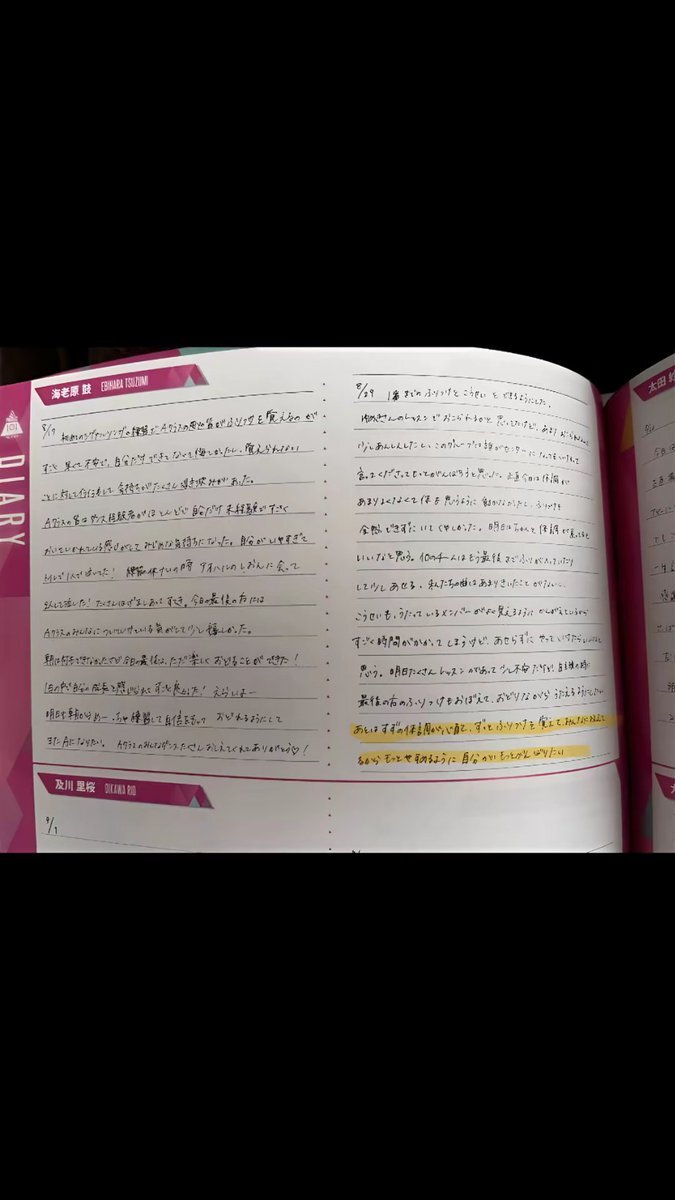 海老原 鼓 EBIHARA TSUZUMI
101
DIARY
8/17 初めてのシグナルソングの練習でAクラスの皆がふりつけを覚えるのが
すごく早くて不安で、自分だけできてなくて悔しかったし、覚えられない
ことに対して行行して気持ちがたくさん
Aクラスの皆はダンス経験者がほとんどで自分だけ未経験ですごく
おいていかれている感じがしてみじめな気持ちになった。自分がいやすぎて
トイレで1人で泣いてた! 練習の休けいの時 アオハルのしおんに会って
2人して泣いた! たくさんはげましあってすき。今日の最後の方には
Aクラスのみんなについていけている気がして少し嬉しかった。
朝は何もできなかったけど今日の最後は、ただ楽しくおどることができた!
1日の中で自分の成長を感じられてすごく良かった! えらいぞー
明日も朝からめーっちゃ練習して自信をもって おどれるようにして
またAになりたい。Aクラスのみんなダンスたくさんおしえてくれてありがとう♡!
8/29 1番までのふりつけとこうせいをできるようにした。
さんのレッスンでおこられるかと思ってたけど、あまりおこられなくて
少しあんしんしたし、このグループは誰がセンターになってもいいねって
言ってくださってもっとがんばろうと思った。正直今日は体調が
あまりよくなくて体を思うように動かせなかったし、ふりつけも
全然できずにいてくやしかった。明日はちゃんと体調が良くなると
いいなと思う。他のチームはもう最後までふりが入っていたり
して少しあせる、私たちの曲はあまりきいたことがない
こうせいも、うたっているメンバーがよく見えるように かんがえているから
すごく時間がかかってしまうけど、あせらずに やっていけたらいいなと
思う。明日たくさんレッスンがあって少し不安だけど、自主練の時に
最後の方のふりつけもおぼえて、おどりながら うたえるようにしたい
あとはすずの体調が心配で、ずっとふりつけを覚えて、みんなにおしえて
るから もっとやすめるように 自分がもっとがんばりたい
及川 里桜 OIKAWA RIO
9/1
太田